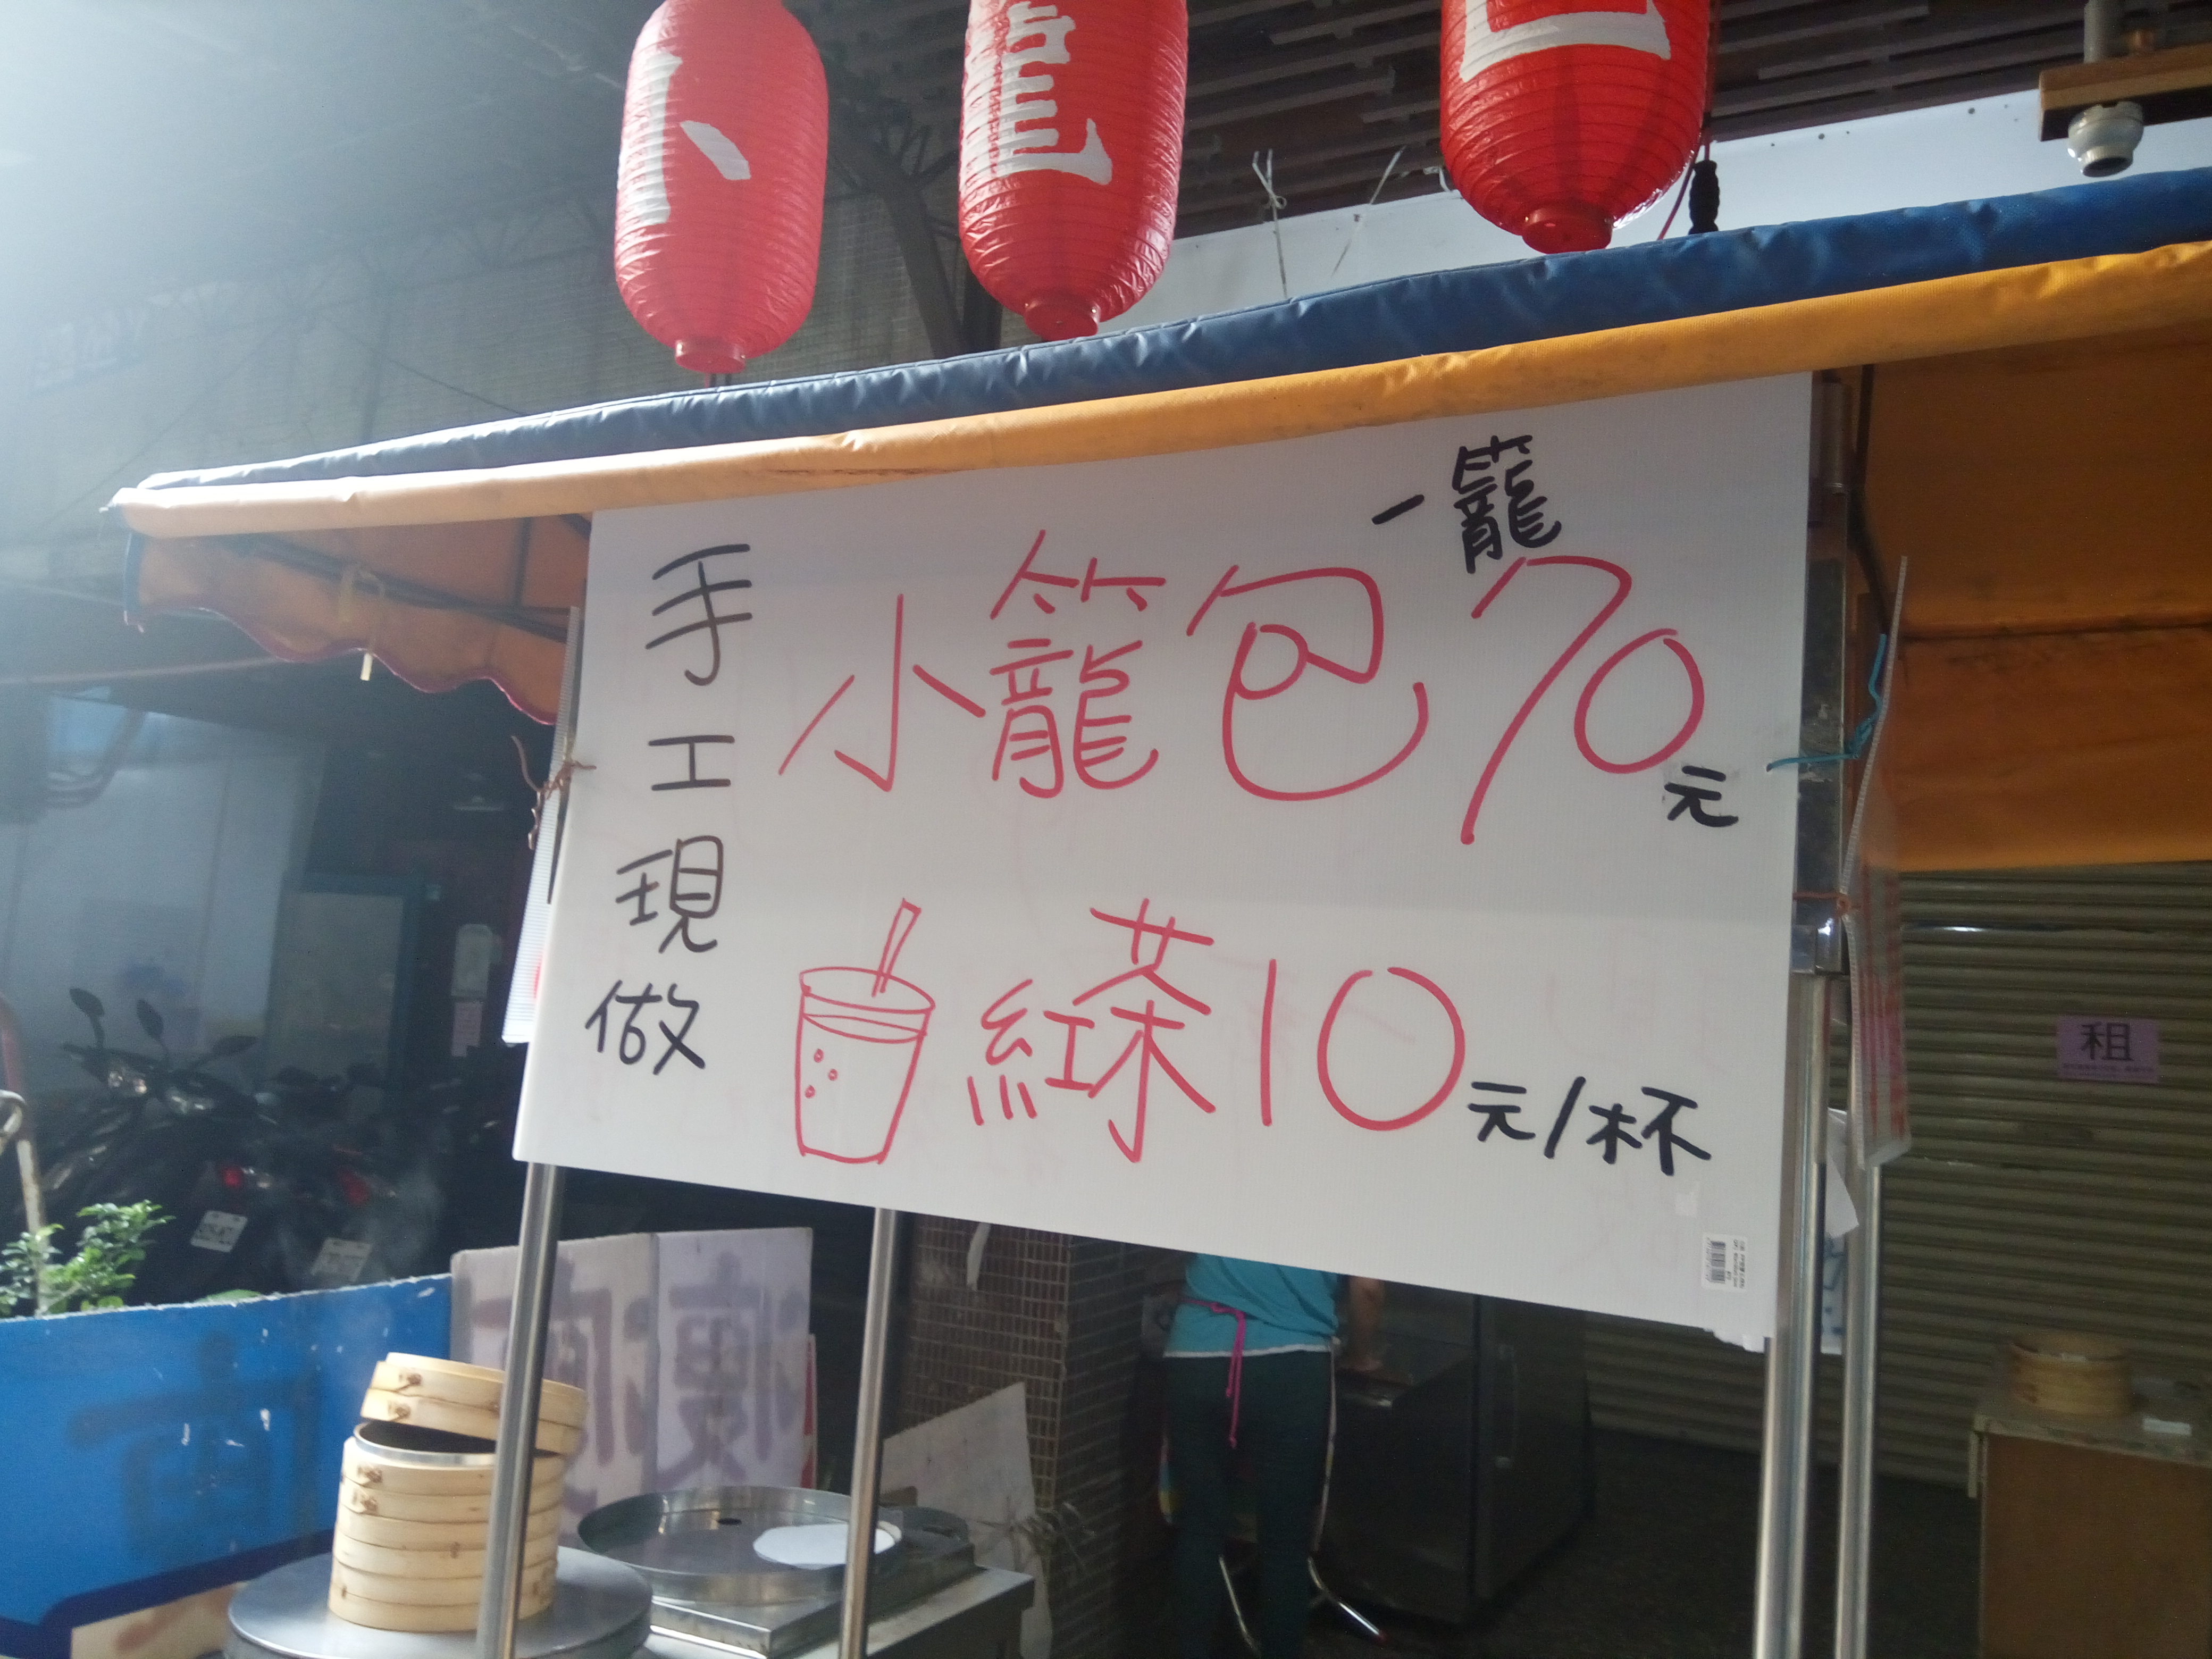 小籠包
手工現做
一籠
小籠包70元
紅茶10元/杯
租